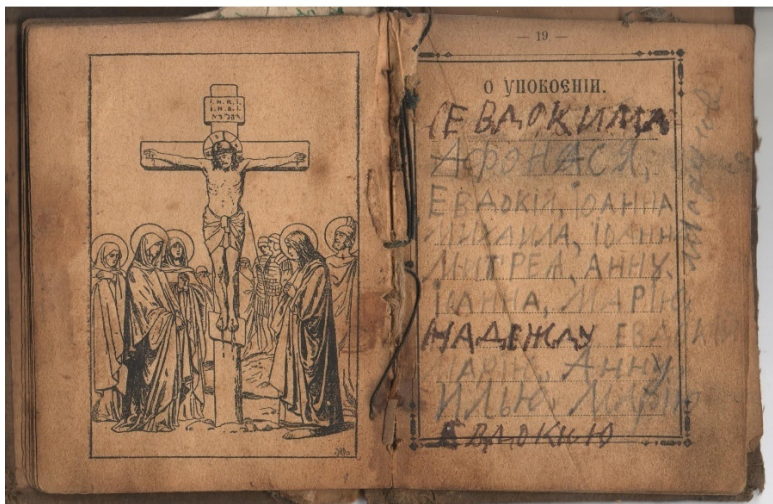 І. Н. Ц. І.
— 19 —
О УПОКОЄНІИ.
ЕВДОКИМА
АФОНАСЯ,
ЕВДОКІИ, ІОАННА
МИХАИЛА, ІОАННА
МИТРЕЯ, АННУ.
ІОАННА, МАРІЮ
НАДЕЖДУ ЕВДОКИЮ
МАРІЮ, АННУ
ИЛЬЮ, МАРІЮ
ЕВДОКИЮ